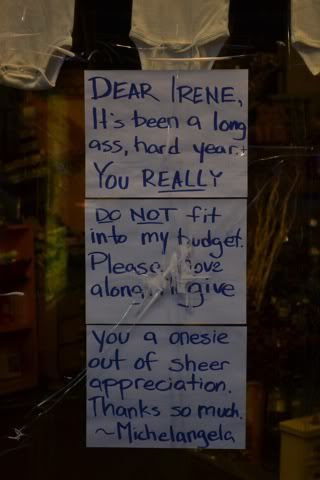 DEAR IRENE,
It's been a long
ass, hard year.
You REALLY
DO NOT fit
into my budget.
Please move
along, I'll give
you a onesie
out of sheer
appreciation.
Thanks so much.
~Michelangela